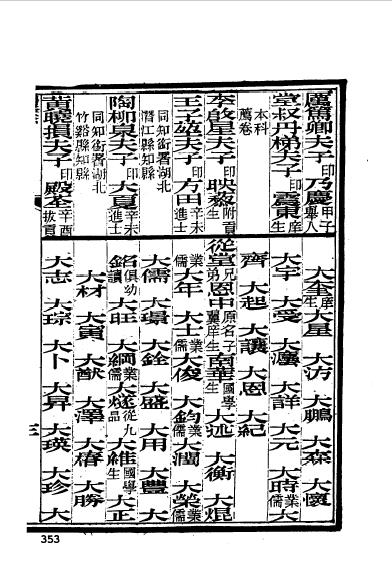 厲篤卿夫子印乃慶甲子舉人
堂叔丹梯夫子印震東庠生
本科薦卷
李啟星夫子印映藜附貢生
王子莖夫子印方田辛未進士
同知銜署湖北潛江縣知縣
陶柳泉夫子印大夏辛未進士
同知銜署湖北竹谿縣知縣
黃曉損夫子印殿荃辛酉拔貢
大奎庠生大星 大汸 大鵬 大森 大懷
大宇 大受 大濂 大詳 大元 大時業儒大
齊 大起 大護 大恩 大紀
從堂兄弟恩中原名子麗庠生南華國學生大述 大衡 大焜
業儒大年 大士業儒大俊 大鈞業儒大潤 大榮業儒
大儒 大環 大銓 大盛 大用 大豐 大
銘俱幼讀大旺 大綱業儒大燧從九品大維國學生大正
大材 大寅 大猷 大澤 大椿 大勝
大志 大琮 大卜 大昇 大瑛 大珍 大
353